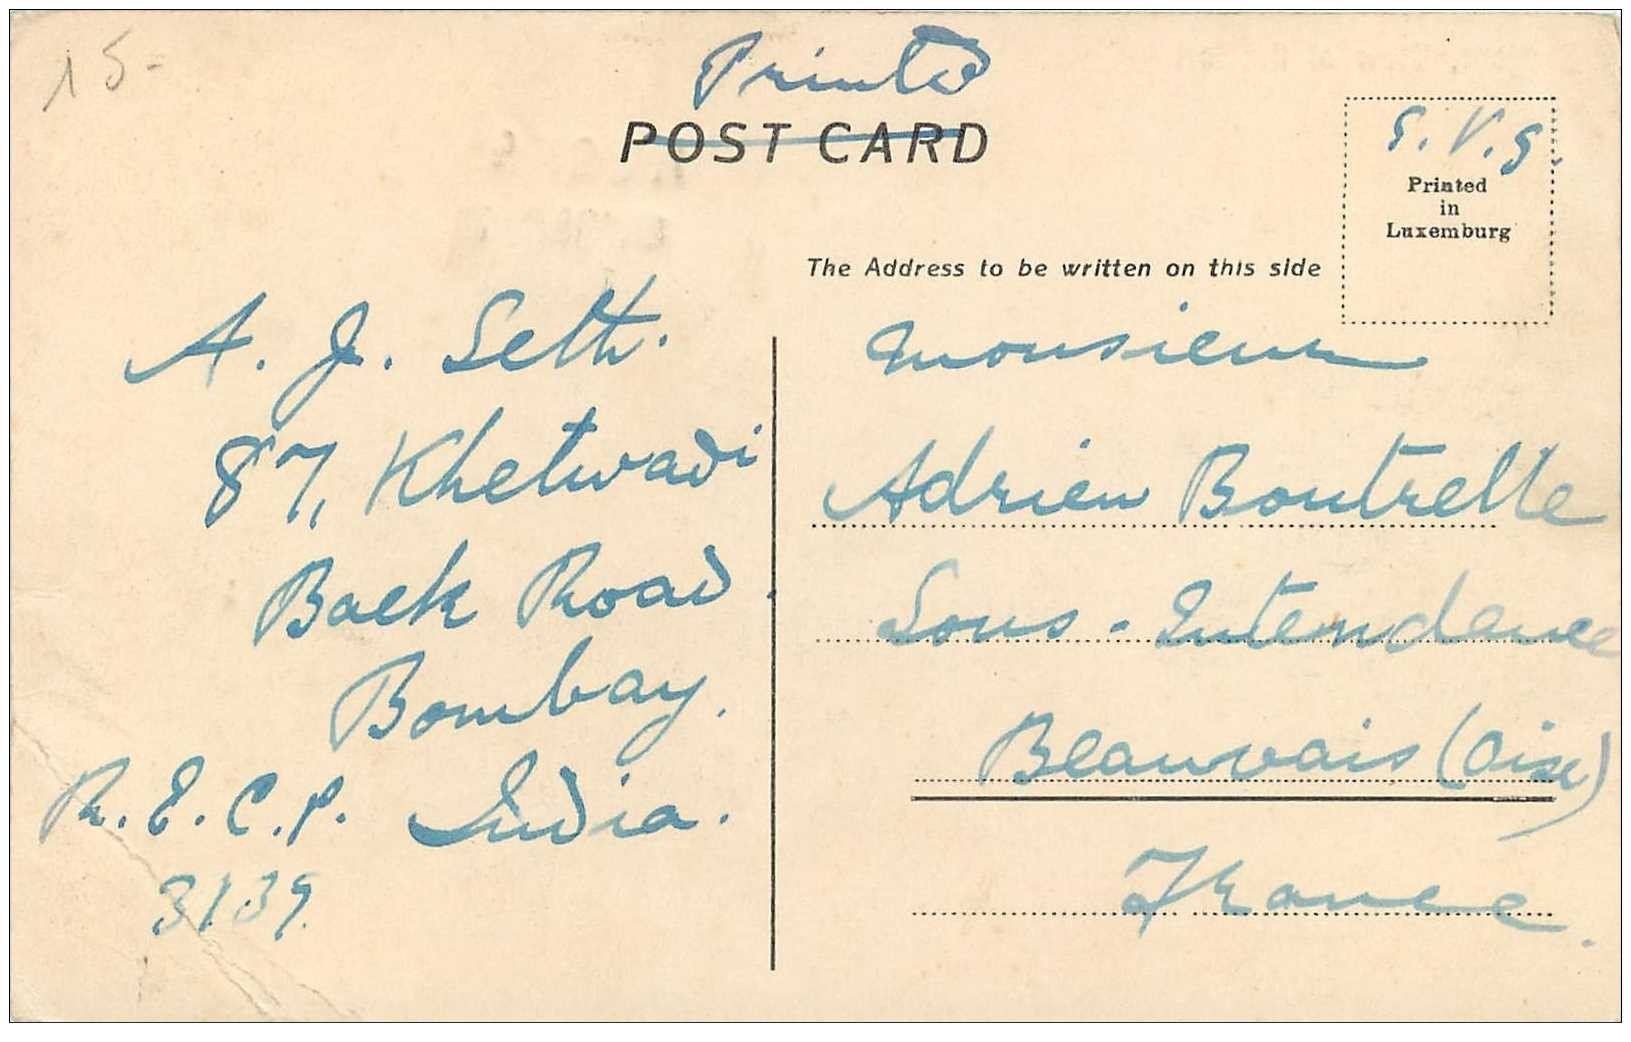 15-
Printed
POST CARD
S. V. S.
Printed
in
Luxemburg
The Address to be written on this side
A. J. Seth.
87, Khetwadi
Back Road.
Bombay.
R. E. C. P. India.
3139.
Monsieur
Adrien Boutrelle
Sous-Intendance
Beauvais (Oise)
France.